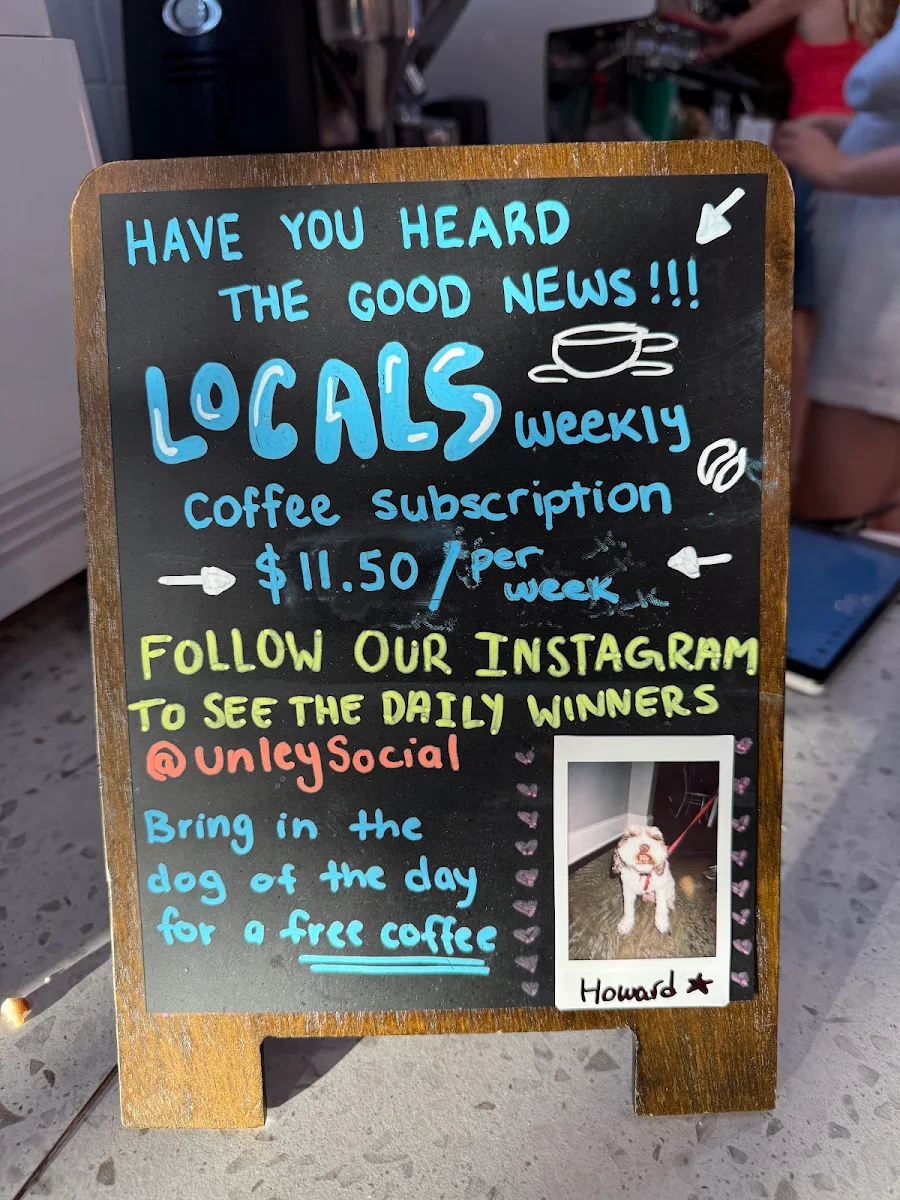 HAVE YOU HEARD
THE GOOD NEWS!!!
LOCALS weekly
coffee subscription
$11.50/per
week
FOLLOW OUR INSTAGRAM
TO SEE THE DAILY WINNERS
@unleySocial
Bring in the
dog of the day
for a free coffee
Howard